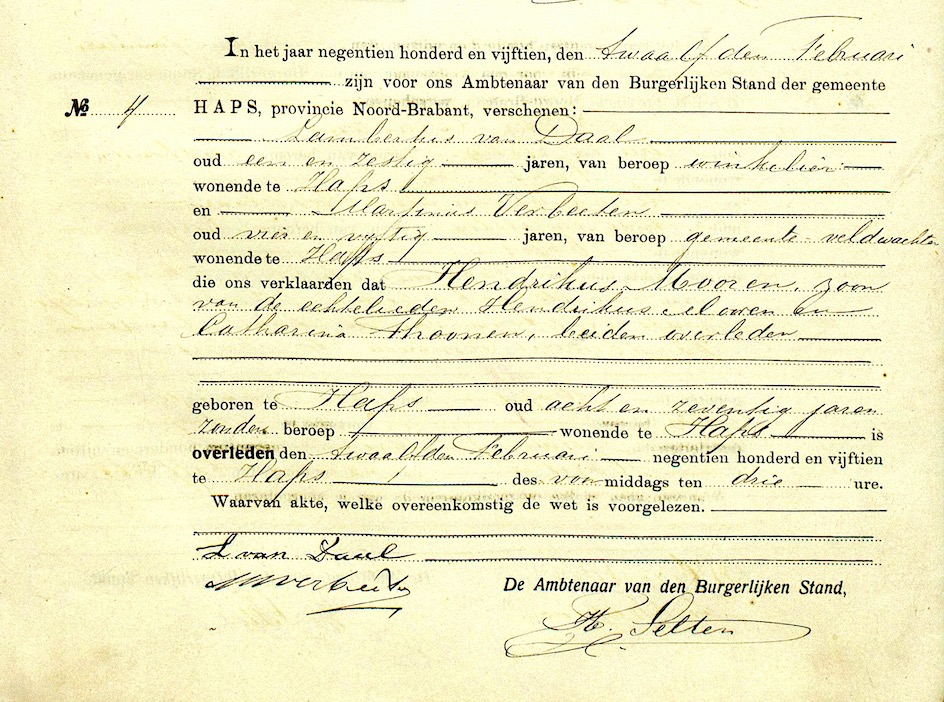 In het jaar negentien honderd en vijftien, den twaalfden Februari
zijn voor ons Ambtenaar van den Burgerlijken Stand der gemeente
№ 4 HAPS, provincie Noord-Brabant, verschenen:
Lambertus van Daal
oud een en zestig jaren, van beroep winkelier
wonende te Haps
en Martinus Verbeeten
oud vier en vijftig jaren, van beroep gemeente-veldwachter
wonende te Haps
die ons verklaarden dat Hendrikus Mooren, zoon
van de echtelieden Hendrikus Mooren en
Catharina Throonen, beiden overleden
geboren te Haps oud acht en zeventig jaren
zonder beroep wonende te Haps is
overleden den twaalfden Februari negentien honderd en vijftien
te Haps des voormiddags ten drie ure.
Waarvan akte, welke overeenkomstig de wet is voorgelezen.
L van Daal
M Verbeeten
De Ambtenaar van den Burgerlijken Stand,
H. Selten